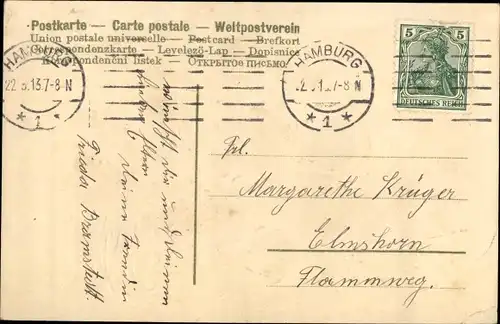 Postkarte — Carte postale — Weltpostverein
Union postale universelle — Postcard — Brefkort
Correspondenzkarte — Levelező-Lap — Dopisnice
Korespondenční listek — ОТКРЫТОЕ ПИСЬМО
HAMBURG
22 5.13.7-8 N
* 1 *
HAMBURG
7-8 N
* 1 *
5 5
DEUTSCHES REICH
wünscht dir und deinen
lieben Eltern
deine Freundin
Frieda Bramstedt.
Frl.
Margarethe Krüger
Elmshorn
Flammweg.